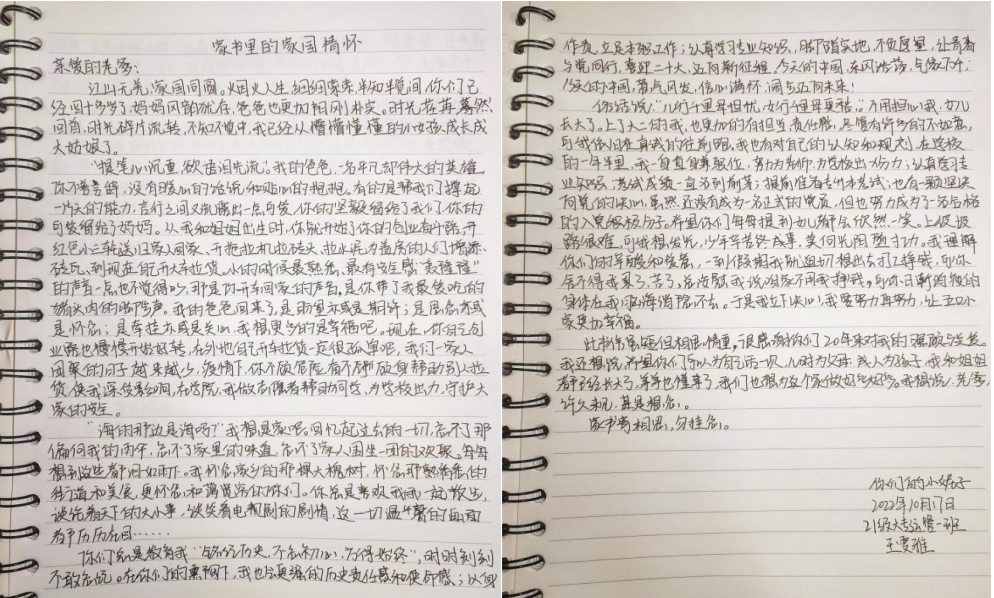 家书里的家国情怀
亲爱的老爹:
江山无恙,家国同圆。烟火人生细细索来半知半觉间你们已
经四十多岁了,妈妈风韵犹存,爸爸也更加阳刚朴实。时光荏苒,蓦然
回首,时光碎片流转,不知不觉中,我已经从懵懵懂懂的小女孩,成长成
大姑娘了。
"提笔心沉重,欲语泪先流。"我的爸爸,一名平凡却伟大的英雄。
你不善言辞,没有暖心的话语和贴心的拥抱。有的是替我们撑起
一片天的能力,言行之间又流露出一点可爱,你的坚毅留给了我们,你的
可爱留给了妈妈。从我和姐姐出生时,你就开始了你的创业奋斗路,开
红色小三轮送归家人回家、开拖拉机拉砖头、拉水泥为盖房的人们增添
砖瓦、到现在自己开大车拉货。小的时候最熟悉、最有安全感"轰隆隆"
的声音一点也不觉得吵,那是你开车回家的声音,是你带了我最爱吃的
猪头肉的脚步声。我的爸爸回来了,是劝里亦或是期许;是思念亦或
是怀念;是牵挂亦或是关心,我想更多的是幸福吧。现在,你自己创
业路也慢慢开始好转,在外地自己开车拉货一定很孤单吧,我们一家人
团聚的日子越来越少。疫情下,你不顾危险,奋不顾身帮助别人拉
货,使我深受影响,在学院,我做志愿者帮助同学,为学校出力,守护大
家的安全。
"海的那边是海吗?"我想是家吧。回忆起过去的一切,忘不了那
偏向我的雨伞,忘不了家里的味道,忘不了家人围坐一团的欢聚。每每
想到这些都泪如雨下。我怀念家乡的那棵大槐树,怀念那熟悉的
街道和美景,更怀念和蔼宽容的你们。你总是喜欢和我一起散步,
谈论着天下的大小事,谈笑着电视剧的剧情,这一切温馨的画面
都历历在目……
你们总是教育我"铭记历史,不忘初心,方得始终",时时刻刻
不敢忘记。在你们的熏陶下,我也会更强的历史责任感和使命感;以身
作责,立足本职工作;认真学习专业知识,脚踏实地,不负愿望,让青春
与党同行,喜迎二十大,迈向新征程,今天的中国,东风浩荡,气象万千;
今天的中国,意气风发,信心满怀,阔步迈向未来!
俗话说,"儿行千里母担忧,女行千里母更愁",不用担心我,女儿
长大了。上了大二的我,也更加的有担当、责任感,尽管有许多的不如意,
可我依旧在真诚的往前跑。我也有对自己的认知和规划,在学校
的一年半里,我一直身兼职位,努力为系部,为学校出一份力;认真学习专
业知识,考试成绩一直名列前茅;提前准备专升本考试;也有一颗坚决
向党的决心,虽然,还没有成为一名正式的党员,但也努力成为了一名合格
的入党积极分子。希望你们每每提到女儿都会欣然一笑。上坡
路很难,可我想发光,少年辛苦终成事,莫向光阴惰寸功。我理解
你们的辛酸和疲惫,一到假期我就迫切想出去打工挣钱,可你
舍不得我累、苦,总安慰我说咱家不用我挣钱。可你日渐消瘦的
身体在我脑海消除不去。于是我下决心,我要努力再努力,让五口小
家更加幸福。
此书信虽短但相思情重,很感谢你们20年来对我的照顾与关爱。
我还想说,希望你们可以为自己活一次,儿时为父母,成人为孩子,我和姐姐
都已经长大了,弟弟也懂事了,我们也想为这个家做好多好多。我想说,老爹,
许久未见,甚是想念。
家书寄相思,勿挂念。
你们的小娟子
2022年10月17日
21级大志运管一班
王雯雅